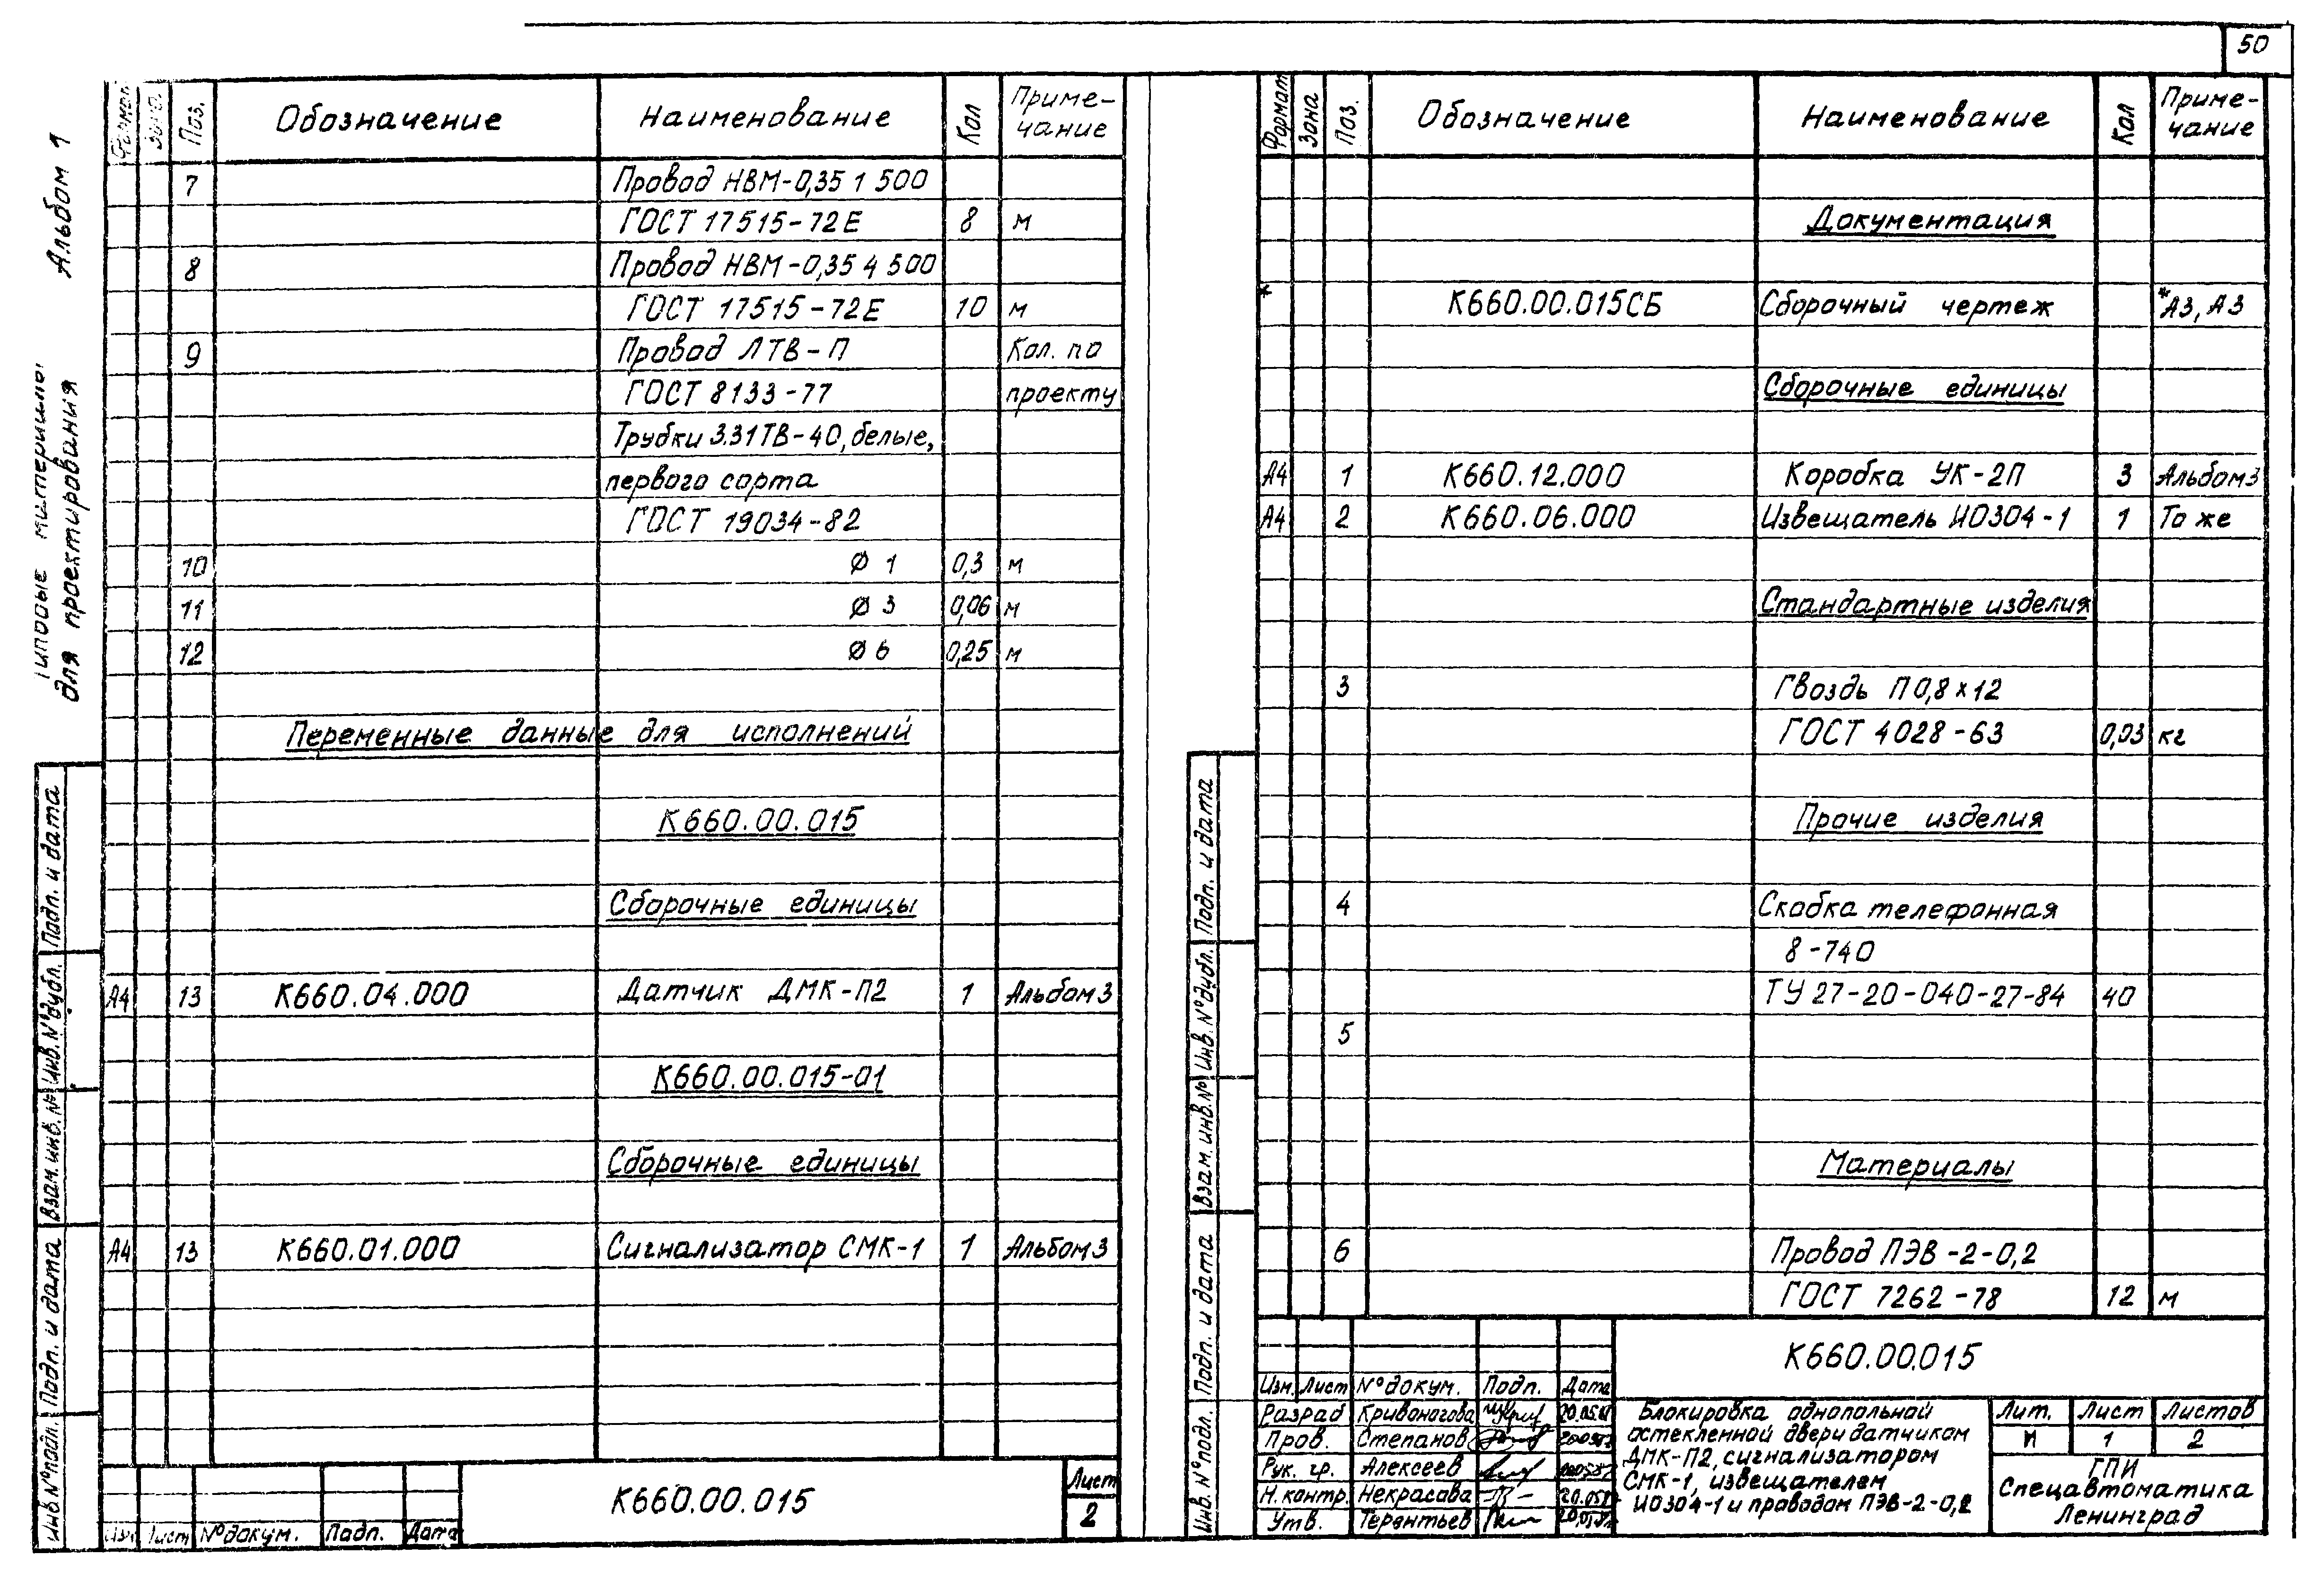 50
Альбом 1
Типовые материалы
для проектирования
Формат Зона Поз. Обозначение Наименование Кол Приме-
чание
7 Провод НВМ-0,35 1 500
ГОСТ 17515-72Е 8 м
8 Провод НВМ-0,35 4 500
ГОСТ 17515-72Е 10 м
9 Провод ЛТВ-П Кол. по
ГОСТ 8133-77 проекту
Трубки 3.31ТВ-40, белые,
первого сорта
ГОСТ 19034-82
10 Ø 1 0,3 м
11 Ø 3 0,06 м
12 Ø 6 0,25 м
Переменные данные для исполнений
К660.00.015
Сборочные единицы
А4 13 К660.04.000 Датчик ДМК-П2 1 Альбом 3
К660.00.015-01
Сборочные единицы
А4 13 К660.01.000 Сигнализатор СМК-1 1 Альбом 3
Инв.№подл. Подп. и дата Взам.инв.№ Инв.№дубл. Подп. и дата
Изм Лист №докум. Подп. Дата
К660.00.015
Лист
2
Формат Зона Поз. Обозначение Наименование Кол Приме-
чание
Документация
* К660.00.015СБ Сборочный чертеж *А3, А3
Сборочные единицы
А4 1 К660.12.000 Коробка УК-2П 3 Альбом 3
А4 2 К660.06.000 Извещатель ИО304-1 1 То же
Стандартные изделия
3 Гвоздь П 0,8×12
ГОСТ 4028-63 0,03 кг
Прочие изделия
4 Скобка телефонная
8-740
ТУ 27-20-040-27-84 40
5
Материалы
6 Провод ПЭВ-2-0,2
ГОСТ 7262-78 12 м
Инв.№подл. Подп. и дата Взам.инв.№ Инв.№дубл. Подп. и дата
К660.00.015
Изм. Лист №докум. Подп. Дата
Разраб Кривоногова
Пров. Степанов
Рук. гр. Алексеев
Н.контр. Некрасова
Утв. Терентьев
Блокировка однопольной
остекленной двери датчиком
ДМК-П2, сигнализатором
СМК-1, извещателем
ИО304-1 и проводом ПЭВ-2-0,2
Лит. Лист Листов
И 1 2
ГПИ
Спецавтоматика
Ленинград